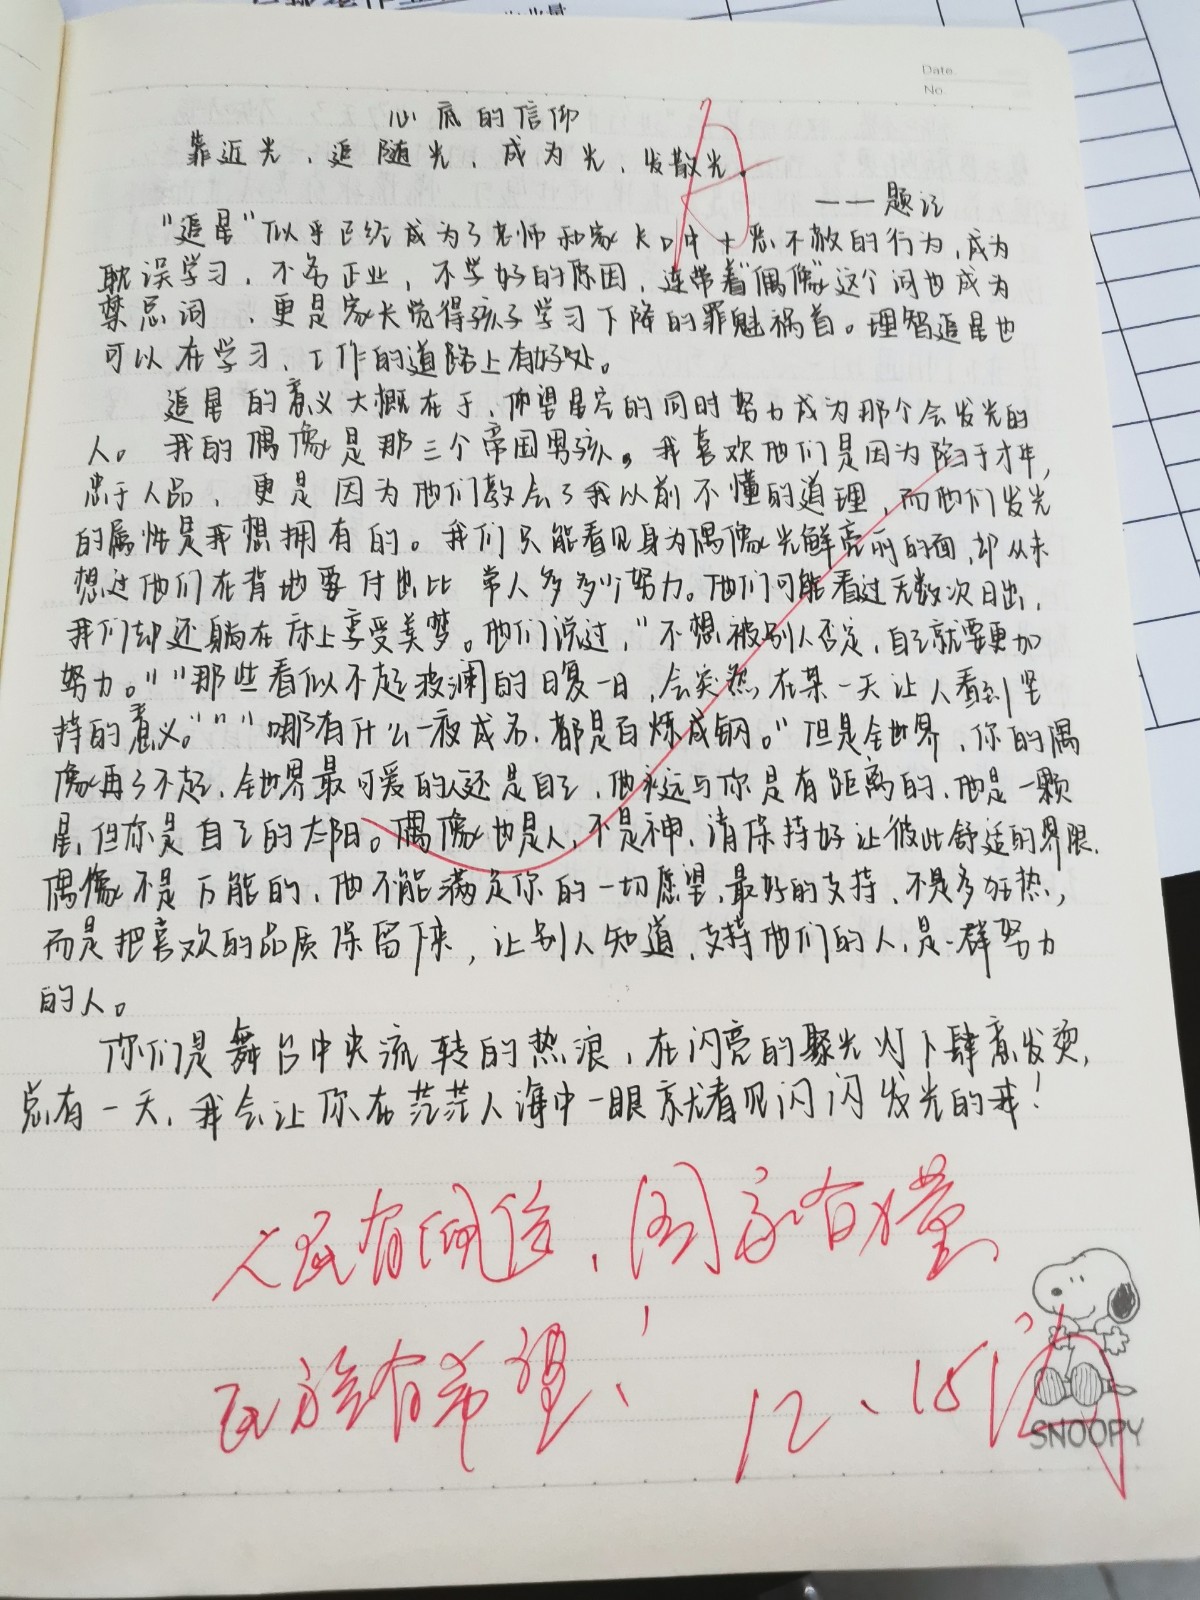 Date.
No.
心底的信仰
靠近光、追随光、成为光、发散光。
——题记
A
"追星"似乎已经成为了老师和家长口中十恶不赦的行为,成为
耽误学习,不务正业,不学好的原因,连带着"偶像"这个词也成为
禁忌词,更是家长觉得孩子学习下降的罪魁祸首。理智追星也
可以在学习、工作的道路上有好处。
追星的意义大概在于,仰望星空的同时努力成为那个会发光的
人。我的偶像是那三个帝国男孩。我喜欢他们是因为陷于才华,
忠于人品,更是因为他们教会了我以前不懂的道理,而他们发光
的属性是我想拥有的。我们只能看见身为偶像光鲜亮丽的面,却从未
想过他们在背地要付出比常人多多少努力。他们可能看过无数次日出,
我们却还躺在床上享受美梦。他们说过,"不想被别人否定,自己就要更加
努力。""那些看似不起波澜的日复一日,会突然在某一天让人看到坚
持的意义。""哪有什么一夜成名,都是百炼成钢。"但是全世界,你的偶
像再了不起,全世界最可爱的人还是自己,他永远与你是有距离的,他是一颗
星,但你是自己的太阳。偶像也是人,不是神,请保持好让彼此舒适的界限.
偶像不是万能的,他不能满足你的一切愿望,最好的支持,不是多狂热,
而是把喜欢的品质保留下来,让别人知道,支持他们的人,是一群努力
的人。
你们是舞台中央流转的热浪,在闪亮的聚光灯下肆意发烫,
总有一天,我会让你在茫茫人海中一眼就看见闪闪发光的我!
人民有信仰,国家有力量
民族有希望!
12、15
SNOOPY